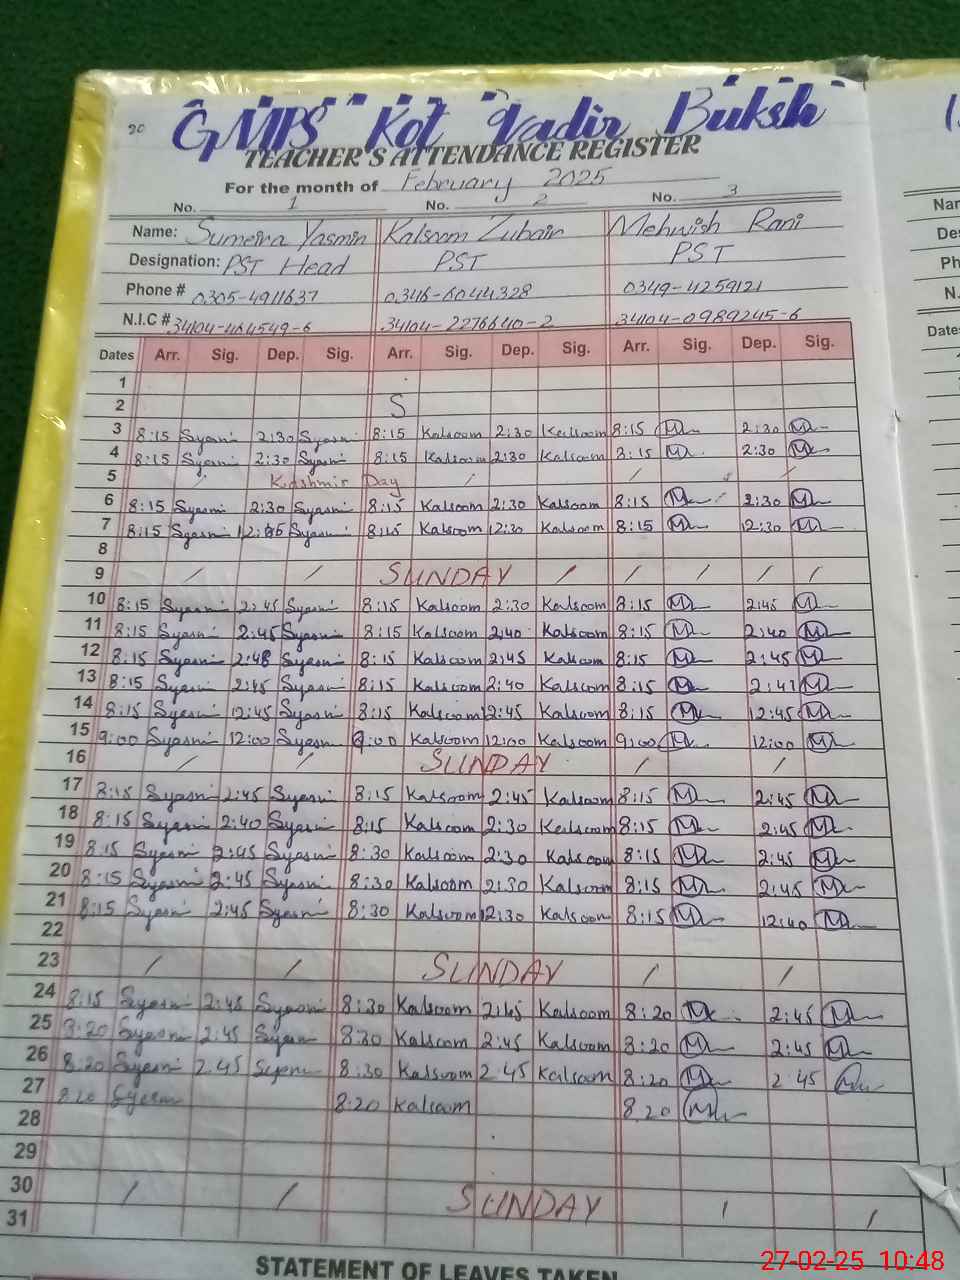 20
GMPS Kot Qadir Buksh
TEACHER'S ATTENDANCE REGISTER
For the month of February 2025
No. 1 No. 2 No. 3
Name: Sumeira Yasmin Kalsoom Zubair Mehwish Rani
Designation: PST Head PST PST
Phone # 0305-4911637 0346-6044328 0349-4259121
N.I.C # 34104-464549-6 34104-2276640-2 34104-0989245-6
Dates Arr. Sig. Dep. Sig. Arr. Sig. Dep. Sig. Arr. Sig. Dep. Sig.
1
2 S
3 8:15 Syasmi 2:30 Syasmi 8:15 Kalsoom 2:30 Kalsoom 8:15 M 2:30 M
4 8:15 Syasmi 2:30 Syasmi 8:15 Kalsoom 2:30 Kalsoom 8:15 M 2:30 M
5 Kashmir Day
6 8:15 Syasmi 2:30 Syasmi 8:15 Kalsoom 2:30 Kalsoom 8:15 M 2:30 M
7 8:15 Syasmi Syasmi 8:15 Kalsoom 12:30 Kalsoom 8:15 M 12:30 M
8
9 / / SUNDAY / / / / /
10 8:15 Syasmi 2:45 Syasmi 8:15 Kalsoom 2:30 Kalsoom 8:15 M 2:45 M
11 8:15 Syasmi 2:45 Syasmi 8:15 Kalsoom 2:40 Kalsoom 8:15 M 2:40 M
12 8:15 Syasmi 2:48 Syasmi 8:15 Kalsoom 2:45 Kalsoom 8:15 M 2:45 M
13 8:15 Syasmi 2:45 Syasmi 8:15 Kalsoom 2:40 Kalsoom 8:15 M 2:41 M
14 8:15 Syasmi 12:45 Syasmi 8:15 Kalsoom 12:45 Kalsoom 8:15 M 12:45 M
15 9:00 Syasmi 12:00 Syasmi 9:00 Kalsoom 12:00 Kalsoom 9:00 M 12:00 M
16 / / SUNDAY / /
17 8:15 Syasmi 2:45 Syasmi 8:15 Kalsoom 2:45 Kalsoom 8:15 M 2:45 M
18 8:15 Syasmi 2:40 Syasmi 8:15 Kalsoom 2:30 Kalsoom 8:15 M 2:45 M
19 8:15 Syasmi 2:45 Syasmi 8:30 Kalsoom 2:30 Kalsoom 8:15 M 2:45 M
20 8:15 Syasmi 2:45 Syasmi 8:30 Kalsoom 2:30 Kalsoom 8:15 M 2:45 M
21 8:15 Syasmi 2:45 Syasmi 8:30 Kalsoom 12:30 Kalsoom 8:15 M 12:40 M
22
23 / / SUNDAY / /
24 8:15 Syasmi 2:45 Syasmi 8:30 Kalsoom 2:45 Kalsoom 8:20 M 2:45 M
25 8:20 Syasmi 2:45 Syasmi 8:30 Kalsoom 2:45 Kalsoom 8:20 M 2:45 M
26 8:20 Syasmi 2.45 Syasmi 8:30 Kalsoom 2.45 Kalsoom 8:20 M 2:45 M
27 8:20 Syasmi 8:20 Kalsoom 8.20 M
28
29
30 / / SUNDAY / /
31
STATEMENT OF LEAVES TAKEN
Dates
27-02-25 10:48